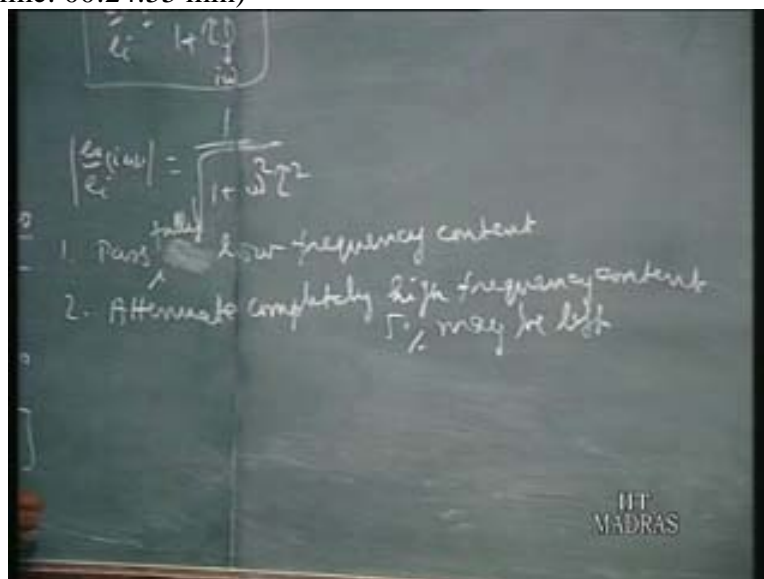 eᵢ 1 + τD
iω
|e₀/eᵢ (iω)| = 1/√(1 + ω²τ²)
fully
1. Pass low frequency content
2. Attenuate completely high frequency content
5% may be left
IIT
MADRAS